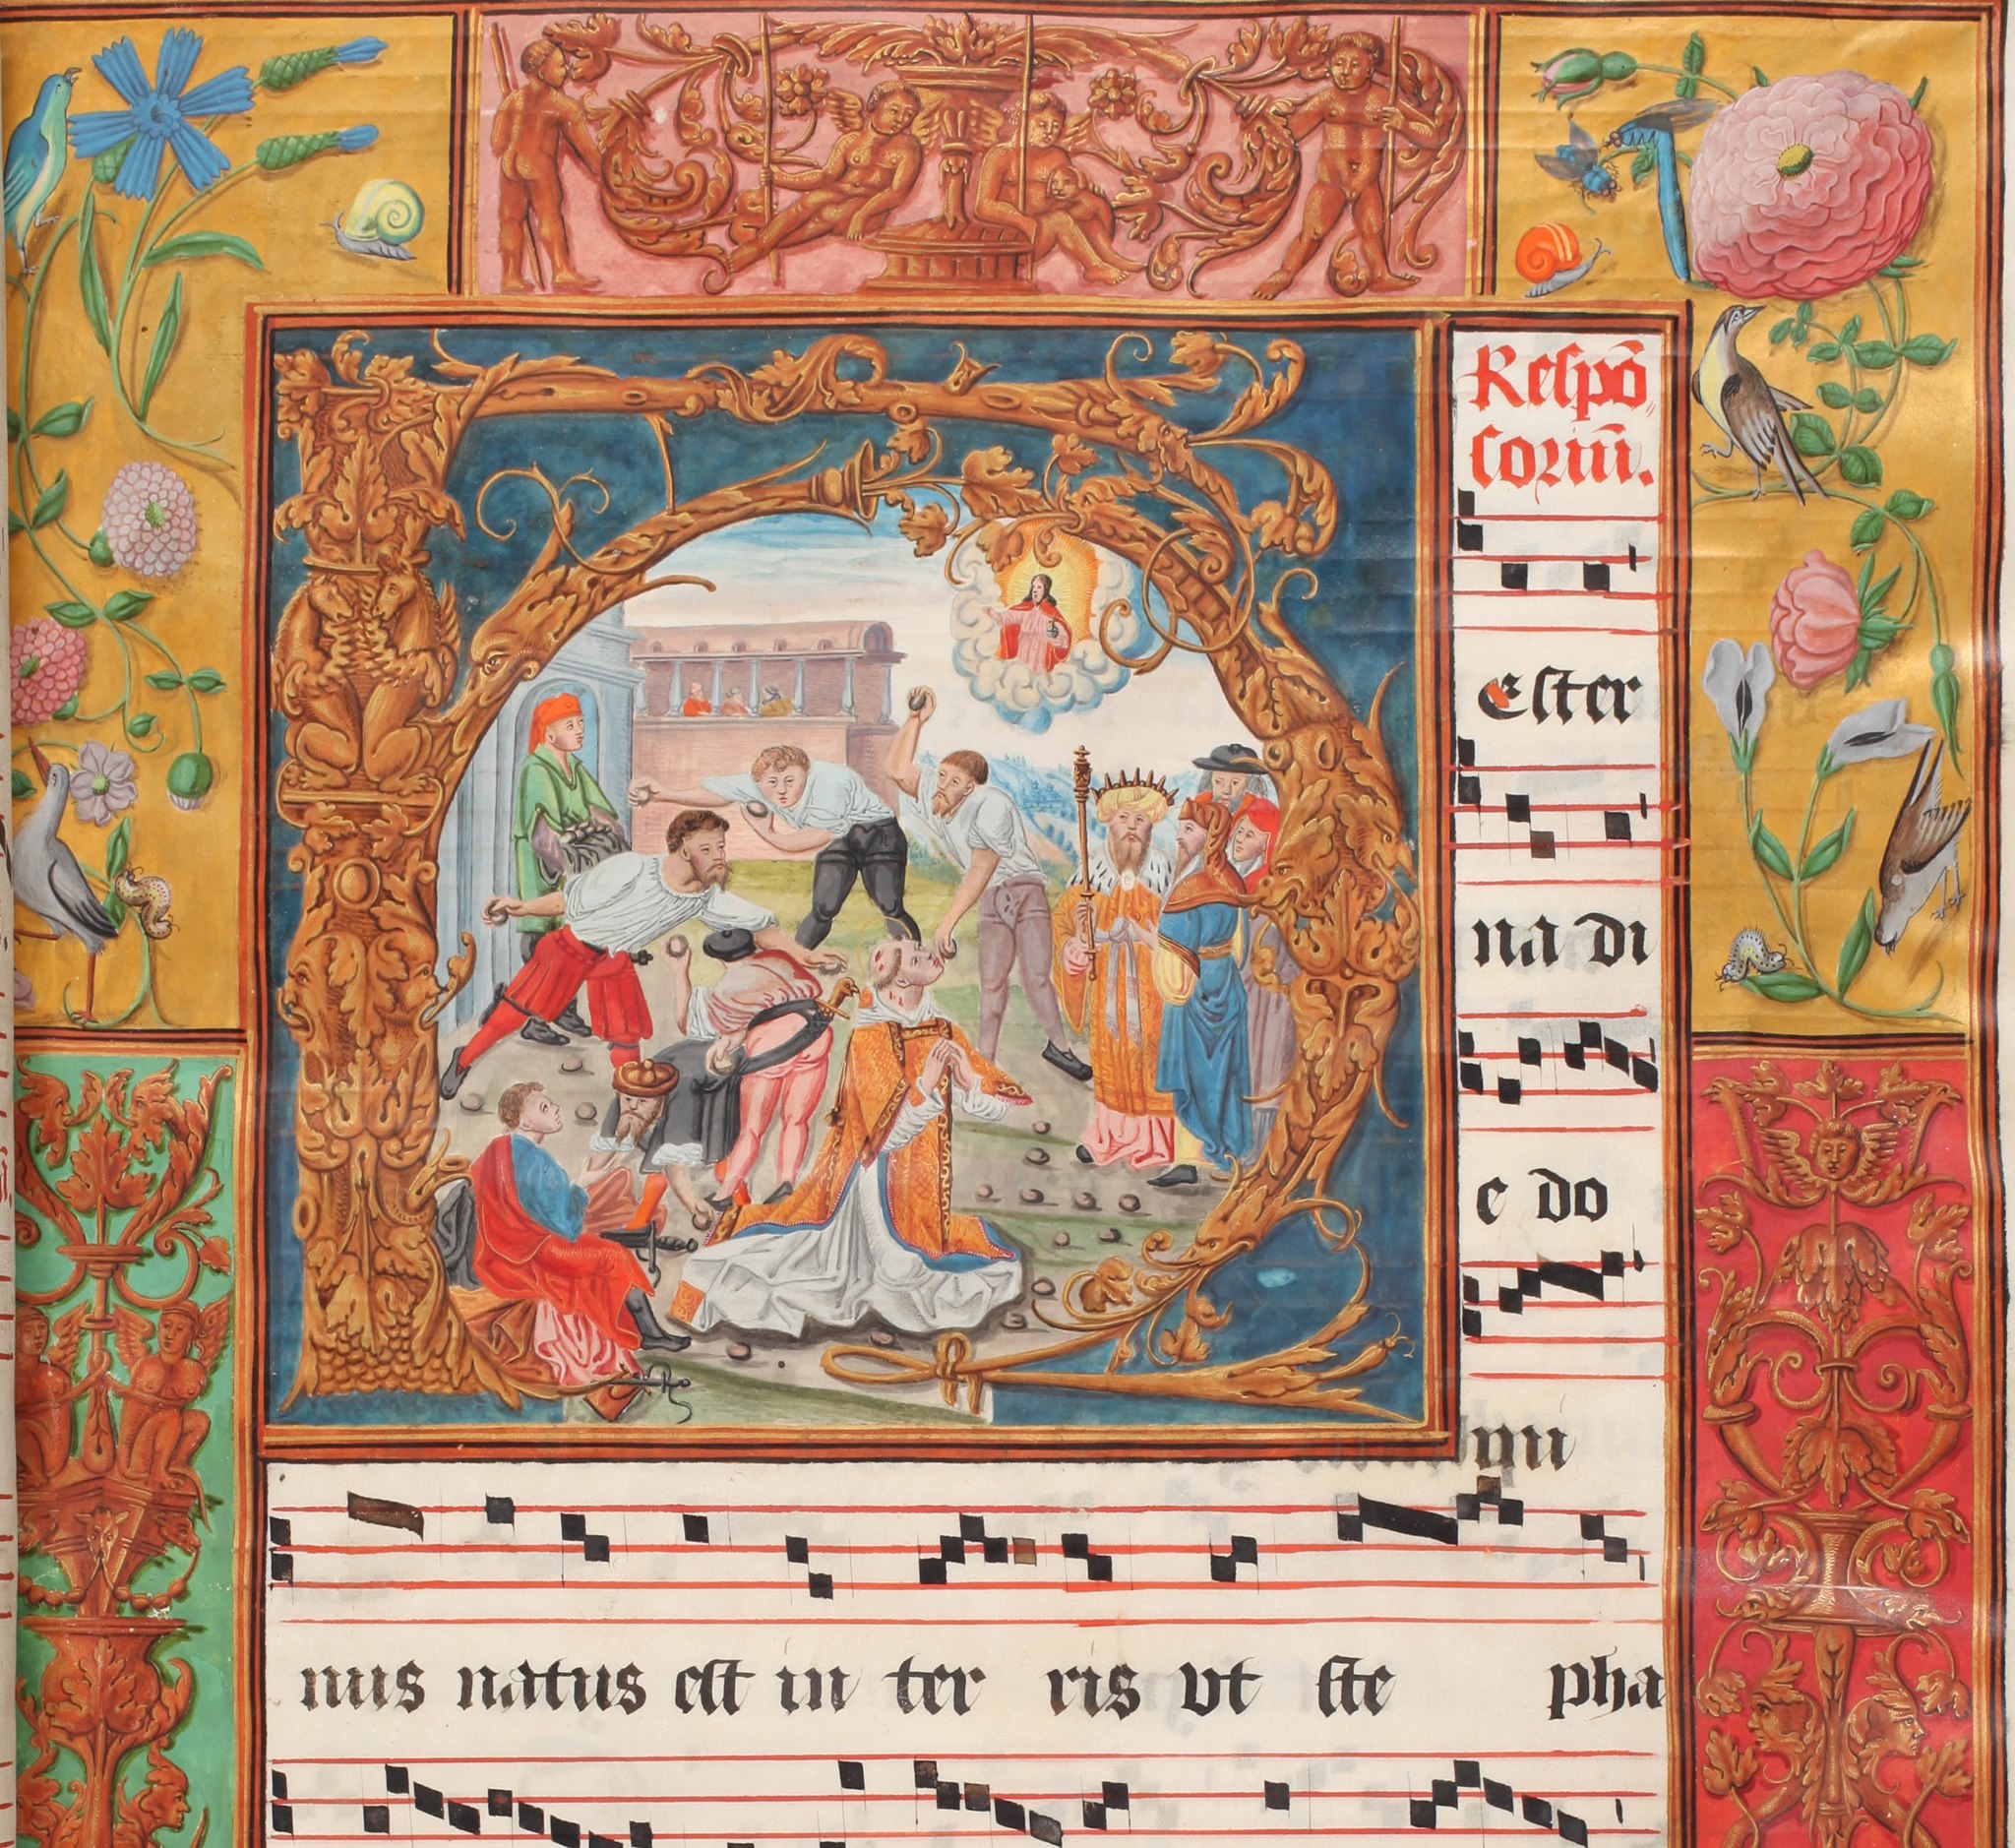 Reſpō
ſoriū.
Heſter
na di
e do
mi
nus natus eſt in ter ris vt ſte pha